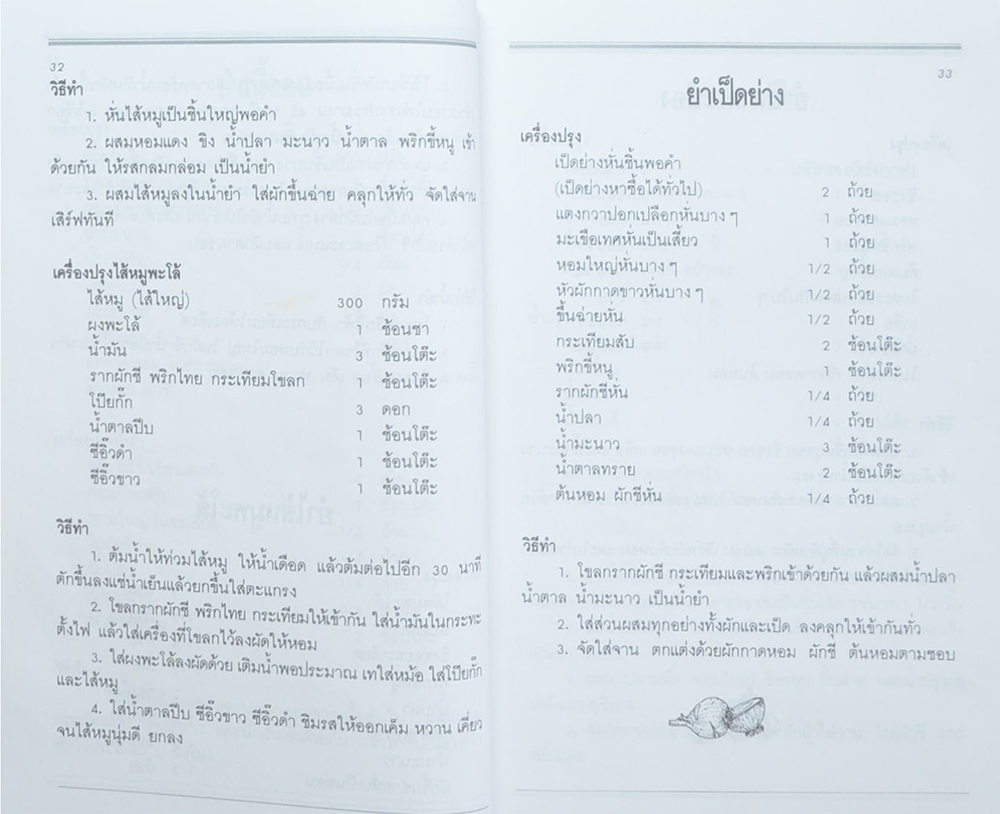 32
วิธีทำ
1. หั่นไส้หมูเป็นชิ้นใหญ่พอคำ
2. ผสมหอมแดง ขิง น้ำปลา มะนาว น้ำตาล พริกขี้หนู เข้า
ด้วยกัน ให้รสกลมกล่อม เป็นน้ำยำ
3. ผสมไส้หมูลงในน้ำยำ ใส่ผักขึ้นฉ่าย คลุกให้ทั่ว จัดใส่จาน
เสิร์ฟทันที
เครื่องปรุงไส้หมูพะโล้
ไส้หมู (ไส้ใหญ่) 300 กรัม
ผงพะโล้ 1 ช้อนชา
น้ำมัน 3 ช้อนโต๊ะ
รากผักชี พริกไทย กระเทียมโขลก 1 ช้อนโต๊ะ
โป๊ยกั๊ก 3 ดอก
น้ำตาลปีบ 1 ช้อนโต๊ะ
ซีอิ๊วดำ 1 ช้อนโต๊ะ
ซีอิ๊วขาว 1 ช้อนโต๊ะ
วิธีทำ
1. ต้มน้ำให้ท่วมไส้หมู ให้น้ำเดือด แล้วต้มต่อไปอีก 30 นาที
ตักขึ้นลงแช่น้ำเย็นแล้วยกขึ้นใส่ตะแกรง
2. โขลกรากผักชี พริกไทย กระเทียมให้เข้ากัน ใส่น้ำมันในกระทะ
ตั้งไฟ แล้วใส่เครื่องที่โขลกไว้ลงผัดให้หอม
3. ใส่ผงพะโล้ลงผัดด้วย เติมน้ำพอประมาณ เทใส่หม้อ ใส่โป๊ยกั๊ก
และไส้หมู
4. ใส่น้ำตาลปีบ ซีอิ๊วขาว ซีอิ๊วดำ ชิมรสให้ออกเค็ม หวาน เคี่ยว
จนไส้หมูนุ่มดี ยกลง
33
ยำเป็ดย่าง
เครื่องปรุง
เป็ดย่างหั่นชิ้นพอคำ
(เป็ดย่างหาซื้อได้ทั่วไป) 2 ถ้วย
แตงกวาปอกเปลือกหั่นบาง ๆ 1 ถ้วย
มะเขือเทศหั่นเป็นเสี้ยว 1 ถ้วย
หอมใหญ่หั่นบาง ๆ 1/2 ถ้วย
หัวผักกาดขาวหั่นบาง ๆ 1/2 ถ้วย
ขึ้นฉ่ายหั่น 1/2 ถ้วย
กระเทียมสับ 2 ช้อนโต๊ะ
พริกขี้หนู 1 ช้อนโต๊ะ
รากผักชีหั่น 1/4 ถ้วย
น้ำปลา 1/4 ถ้วย
น้ำมะนาว 3 ช้อนโต๊ะ
น้ำตาลทราย 2 ช้อนโต๊ะ
ต้นหอม ผักชีหั่น 1/4 ถ้วย
วิธีทำ
1. โขลกรากผักชี กระเทียมและพริกเข้าด้วยกัน แล้วผสมน้ำปลา
น้ำตาล น้ำมะนาว เป็นน้ำยำ
2. ใส่ส่วนผสมทุกอย่างทั้งผักและเป็ด ลงคลุกให้เข้ากันทั่ว
3. จัดใส่จาน ตกแต่งด้วยผักกาดหอม ผักชี ต้นหอมตามชอบ